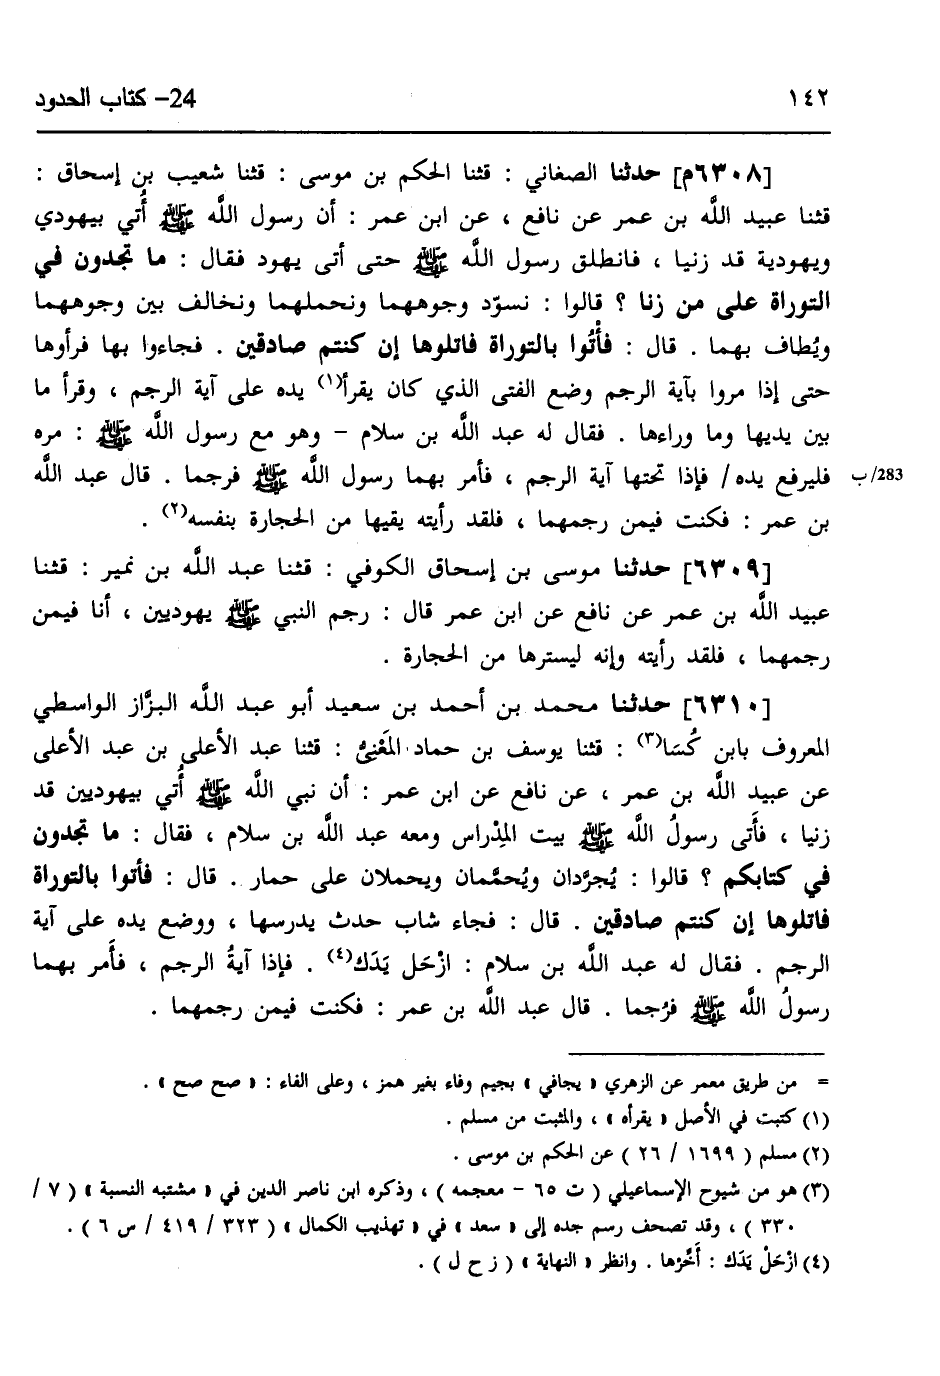 ١٤٢
24- كتاب الحدود
[٦٣٠٨م] حدثنا الصغاني : قثنا الحكم بن موسى : قثنا شعيب بن إسحاق :
قثنا عبيد اللَّه بن عمر عن نافع ، عن ابن عمر : أن رسول اللَّه ﷺ أُتي بيهودي
ويهودية قد زنيا ، فانطلق رسول اللَّه ﷺ حتى أتى يهود فقال : ما تجدون في
التوراة على من زنا ؟ قالوا : نسوّد وجوههما ونحملهما ونخالف بين وجوههما
ويُطاف بهما . قال : فأْتُوا بالتوراة فاتلوها إن كنتم صادقين . فجاءوا بها فرأوها
حتى إذا مروا بآية الرجم وضع الفتى الذي كان يقرأ(١) يده على آية الرجم ، وقرأ ما
بين يديها وما وراءها . فقال له عبد اللَّه بن سلام – وهو مع رسول اللَّه ﷺ : مره
فليرفع يده/ فإذا تحتها آية الرجم ، فأمر بهما رسول اللَّه ﷺ فرجما . قال عبد اللَّه
283/ب
بن عمر : فكنت فيمن رجمهما ، فلقد رأيته يقيها من الحجارة بنفسه(٢) .
[٦٣٠٩] حدثنا موسى بن إسحاق الكوفي : قثنا عبد اللَّه بن نمير : قثنا
عبيد اللَّه بن عمر عن نافع عن ابن عمر قال : رجم النبي ﷺ يهوديين ، أنا فيمن
رجمهما ، فلقد رأيته وإنه ليسترها من الحجارة .
[٦٣١٠] حدثنا محمد بن أحمد بن سعيد أبو عبد اللَّه البزَّاز الواسطي
المعروف بابن كُسَا(٣) : قثنا يوسف بن حماد المَعْنِيُّ : قثنا عبد الأعلى بن عبد الأعلى
عن عبيد اللَّه بن عمر ، عن نافع عن ابن عمر : أن نبي اللَّه ﷺ أُتي بيهوديين قد
زنيا ، فأَتى رسولُ اللَّه ﷺ بيت المِدْراس ومعه عبد اللَّه بن سلام ، فقال : ما تجدون
في كتابكم ؟ قالوا : يُجرَّدان ويُحمَّمان ويحملان على حمار . قال : فأتوا بالتوراة
فاتلوها إن كنتم صادقين . قال : فجاء شاب حدث يدرسها ، ووضع يده على آية
الرجم . فقال له عبد اللَّه بن سلام : ازْحَل يَدَك(٤) . فإذا آيةُ الرجم ، فأَمر بهما
رسولُ اللَّه ﷺ فرُجما . قال عبد اللَّه بن عمر : فكنت فيمن رجمهما .
= من طريق معمر عن الزهري « يجافي » بجيم وفاء بغير همز ، وعلى الفاء : « صح صح » .
(١) كتبت في الأصل « يقرأه » ، والمثبت من مسلم .
(٢) مسلم ( ١٦٩٩ / ٢٦ ) عن الحكم بن موسى .
(٣) هو من شيوح الإسماعيلي ( ت ٦٥ – معجمه ) ، وذكره ابن ناصر الدين في « مشتبه النسبة » ( ٧ /
٣٣٠ ) ، وقد تصحف رسم جده إلى « سعد » في « تهذيب الكمال » ( ٣٢٣ / ٤١٩ / س ٦ ) .
(٤) ازْحَلْ يَدَك : أَخِّرْها . وانظر « النهاية » ( ز ح ل ) .